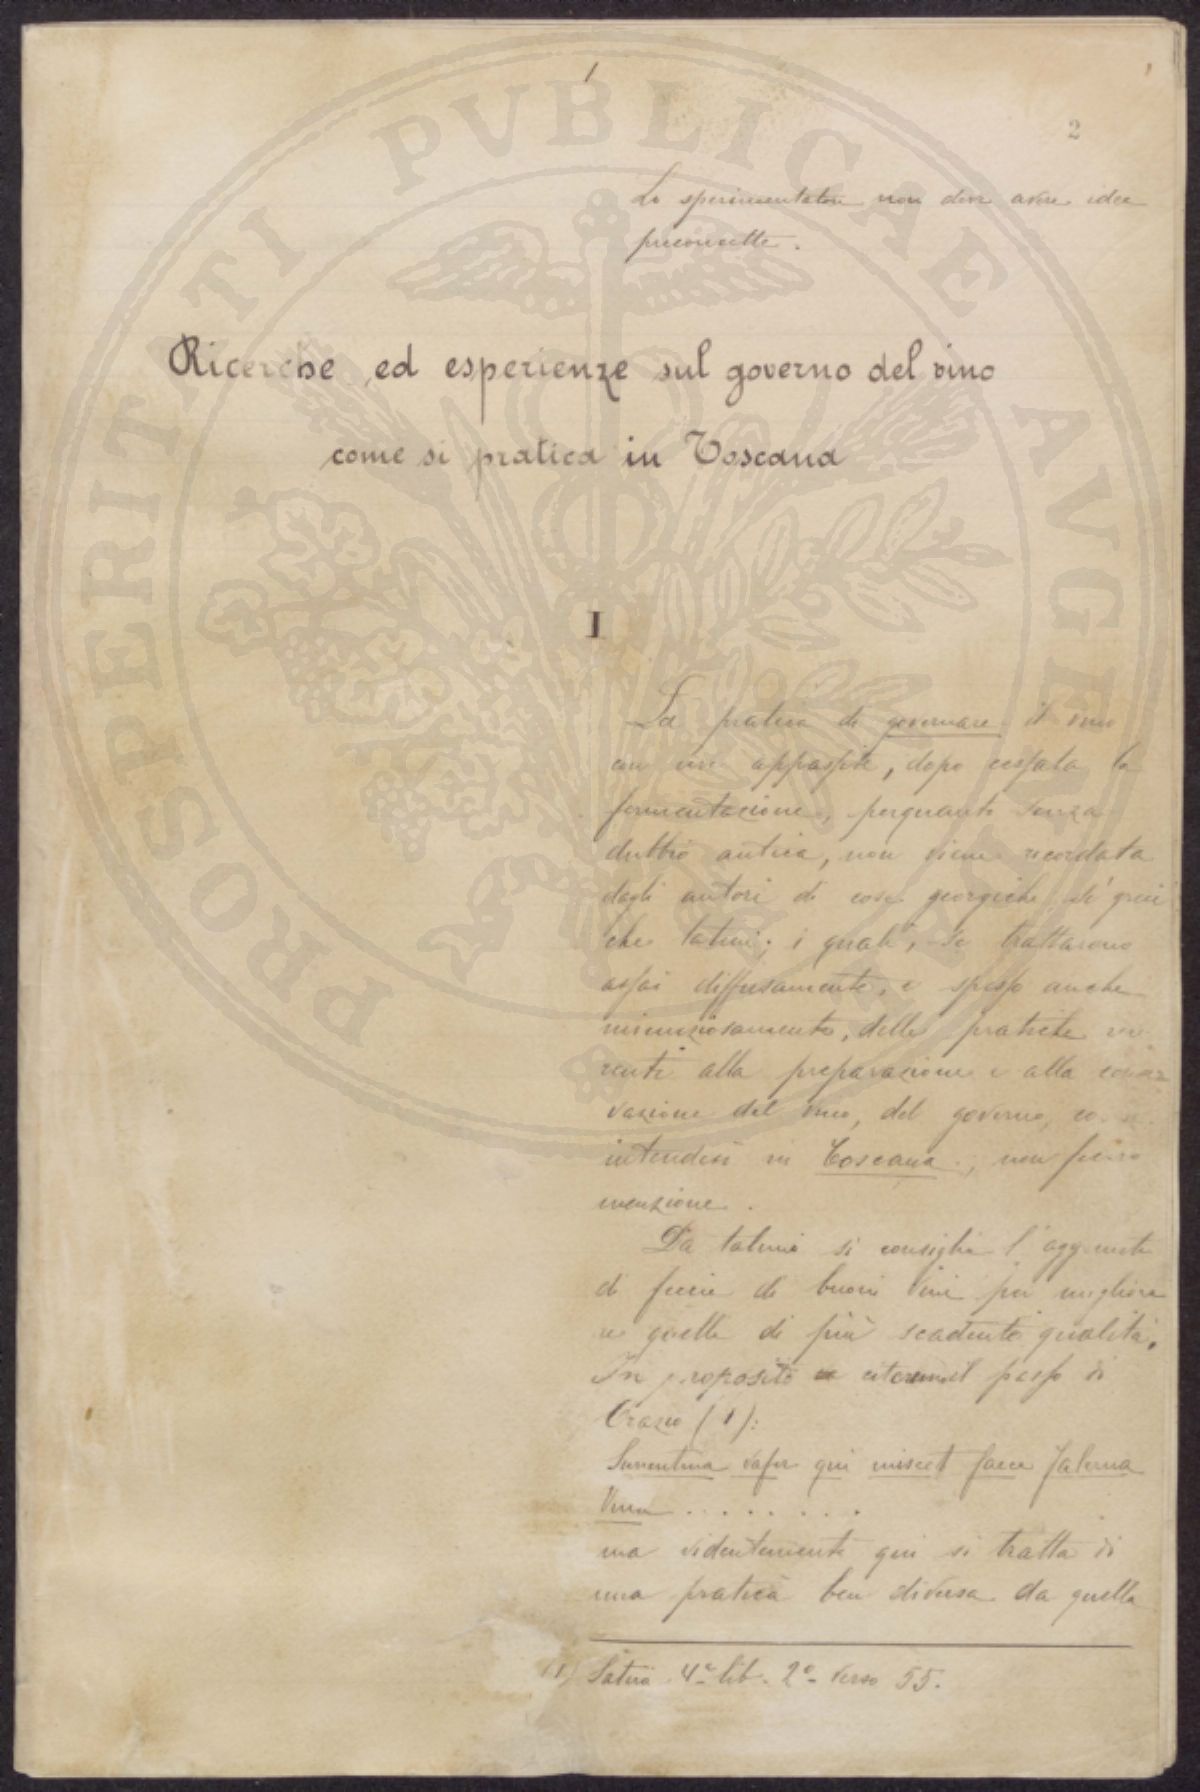 1
2
Lo sperimentatore non deve avere idee
preconcette.
Ricerche ed esperienze sul governo del vino
come si pratica in Toscana
I
La pratica di governare il vino
con uve appassite, dopo cessata la
fermentazione, perquanto senza
dubbio antica, non viene ricordata
dagli autori di cose georgiche sì greci
che latini; i quali, se trattarono
assai diffusamente, e spesso anche
minuziosamente, delle pratiche
renti alla preparazione e alla conser
vazione del vino, del governo,
intendesi in Toscana, non fecero
menzione.
Da taluno si consiglia l'aggiunta
di feccie di buoni vini per migliora
re quelle di più scadente qualità.
In proposito citeremo il passo di
Orazio (1):
Surrentina vafer qui miscet faece falerna
Vina ........
ma evidentemente qui si tratta di
una pratica ben diversa da quella
(1) Satira 4ª lib. 2º verso 55.
PROSPERITATI PVBLICAE AVGENDAE